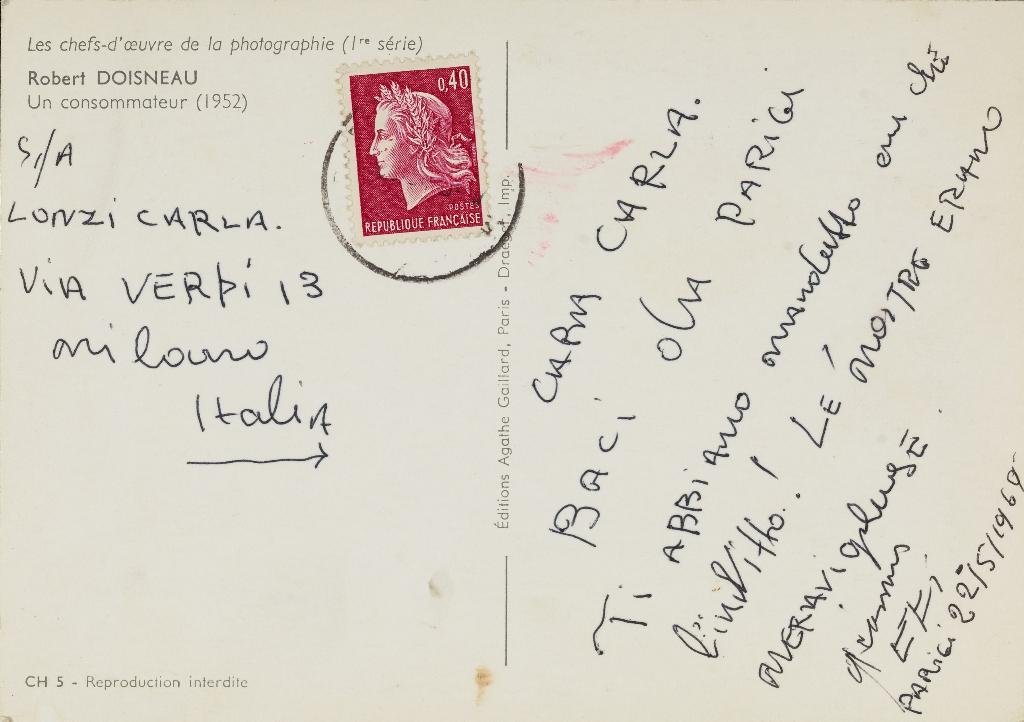 Les chefs-d'œuvre de la photographie (1re série)
Robert DOISNEAU
Un consommateur (1952)
0,40
POSTES
REPUBLIQUE FRANÇAISE
S/A
LONZI CARLA.
VIA VERDI 13
milano
Italia
CH 5 - Reproduction interdite
Éditions Agathe Gaillard, Paris - Imp.
CARA CARLA.
BACI DA PARIGI
Ti ABBIAMO mandato
l'indirizzo! LE nostre ERANO
MERAVigliose
PARIGI 22/5/1969